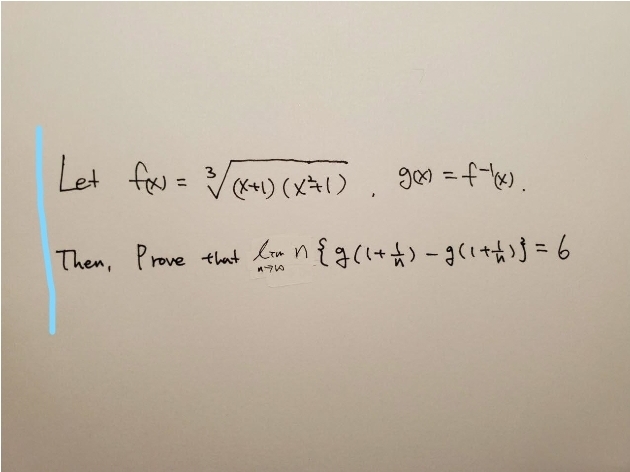 Let f(x) = ∛((x+1)(x²+1) , g(x) = f⁻¹(x).
Then, Prove that lim n→∞ n{g(1+1/n) - g(1+1/n)} = 6